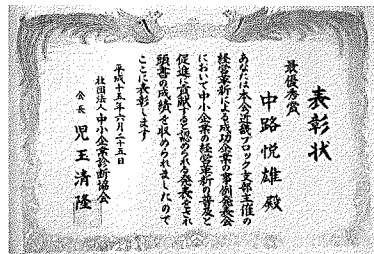 表彰状
最優秀賞
中路悦雄殿
あなたは本会近畿ブロック支部主催の
経営革新による成功企業の事例発表会
において中小企業の経営革新の普及と
促進に貢献すると認められる発表をされ
頭書の成績を収められましたので
ここに表彰します
平成十五年六月二十五日
社団法人中小企業診断協会
会長児玉清隆